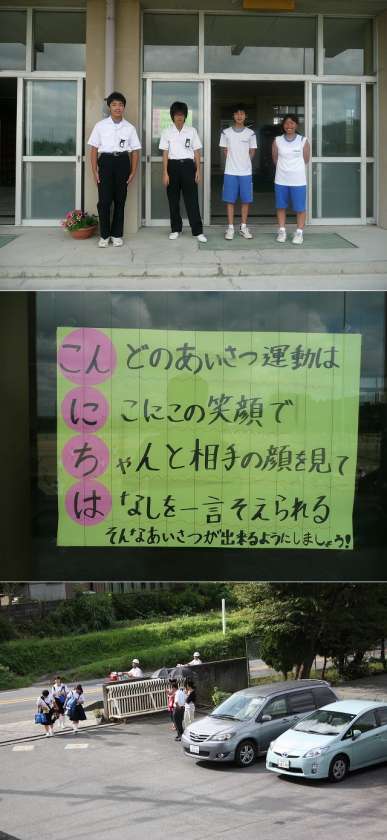 こんどのあいさつ運動は
にこにこの笑顔で
ちゃんと相手の顔を見て
はなしを一言そえられる
そんなあいさつが出来るようにしましょう！